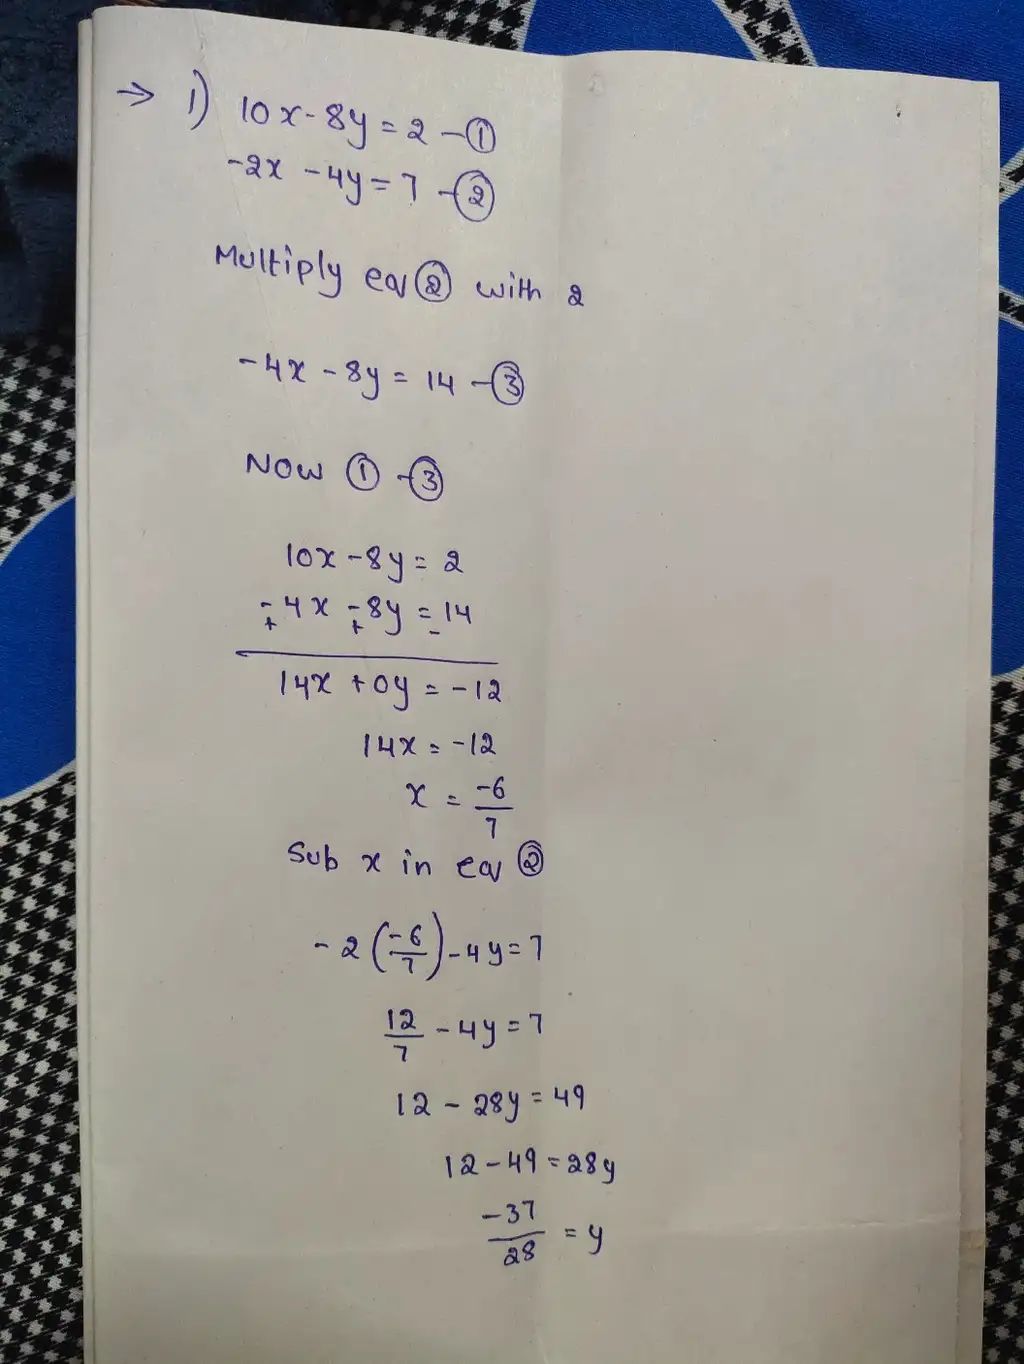 → 1) 10x - 8y = 2 - ①
-2x - 4y = 7 - ②
Multiply eq ② with 2
-4x - 8y = 14 - ③
Now ① - ③
10x - 8y = 2
-4x -8y = 14
+ + -
14x + 0y = -12
14x = -12
x = -6/7
Sub x in eq ②
-2(-6/7) - 4y = 7
12/7 - 4y = 7
12 - 28y = 49
12 - 49 = 28y
-37/28 = y